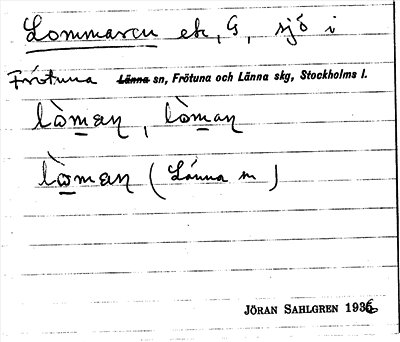 Lommaren ek, G, sjö i
Frötuna Länna sn, Frötuna och Länna skg, Stockholms l.
lòman, lòman
lòman (Länna sn)
JÖRAN SAHLGREN 1936